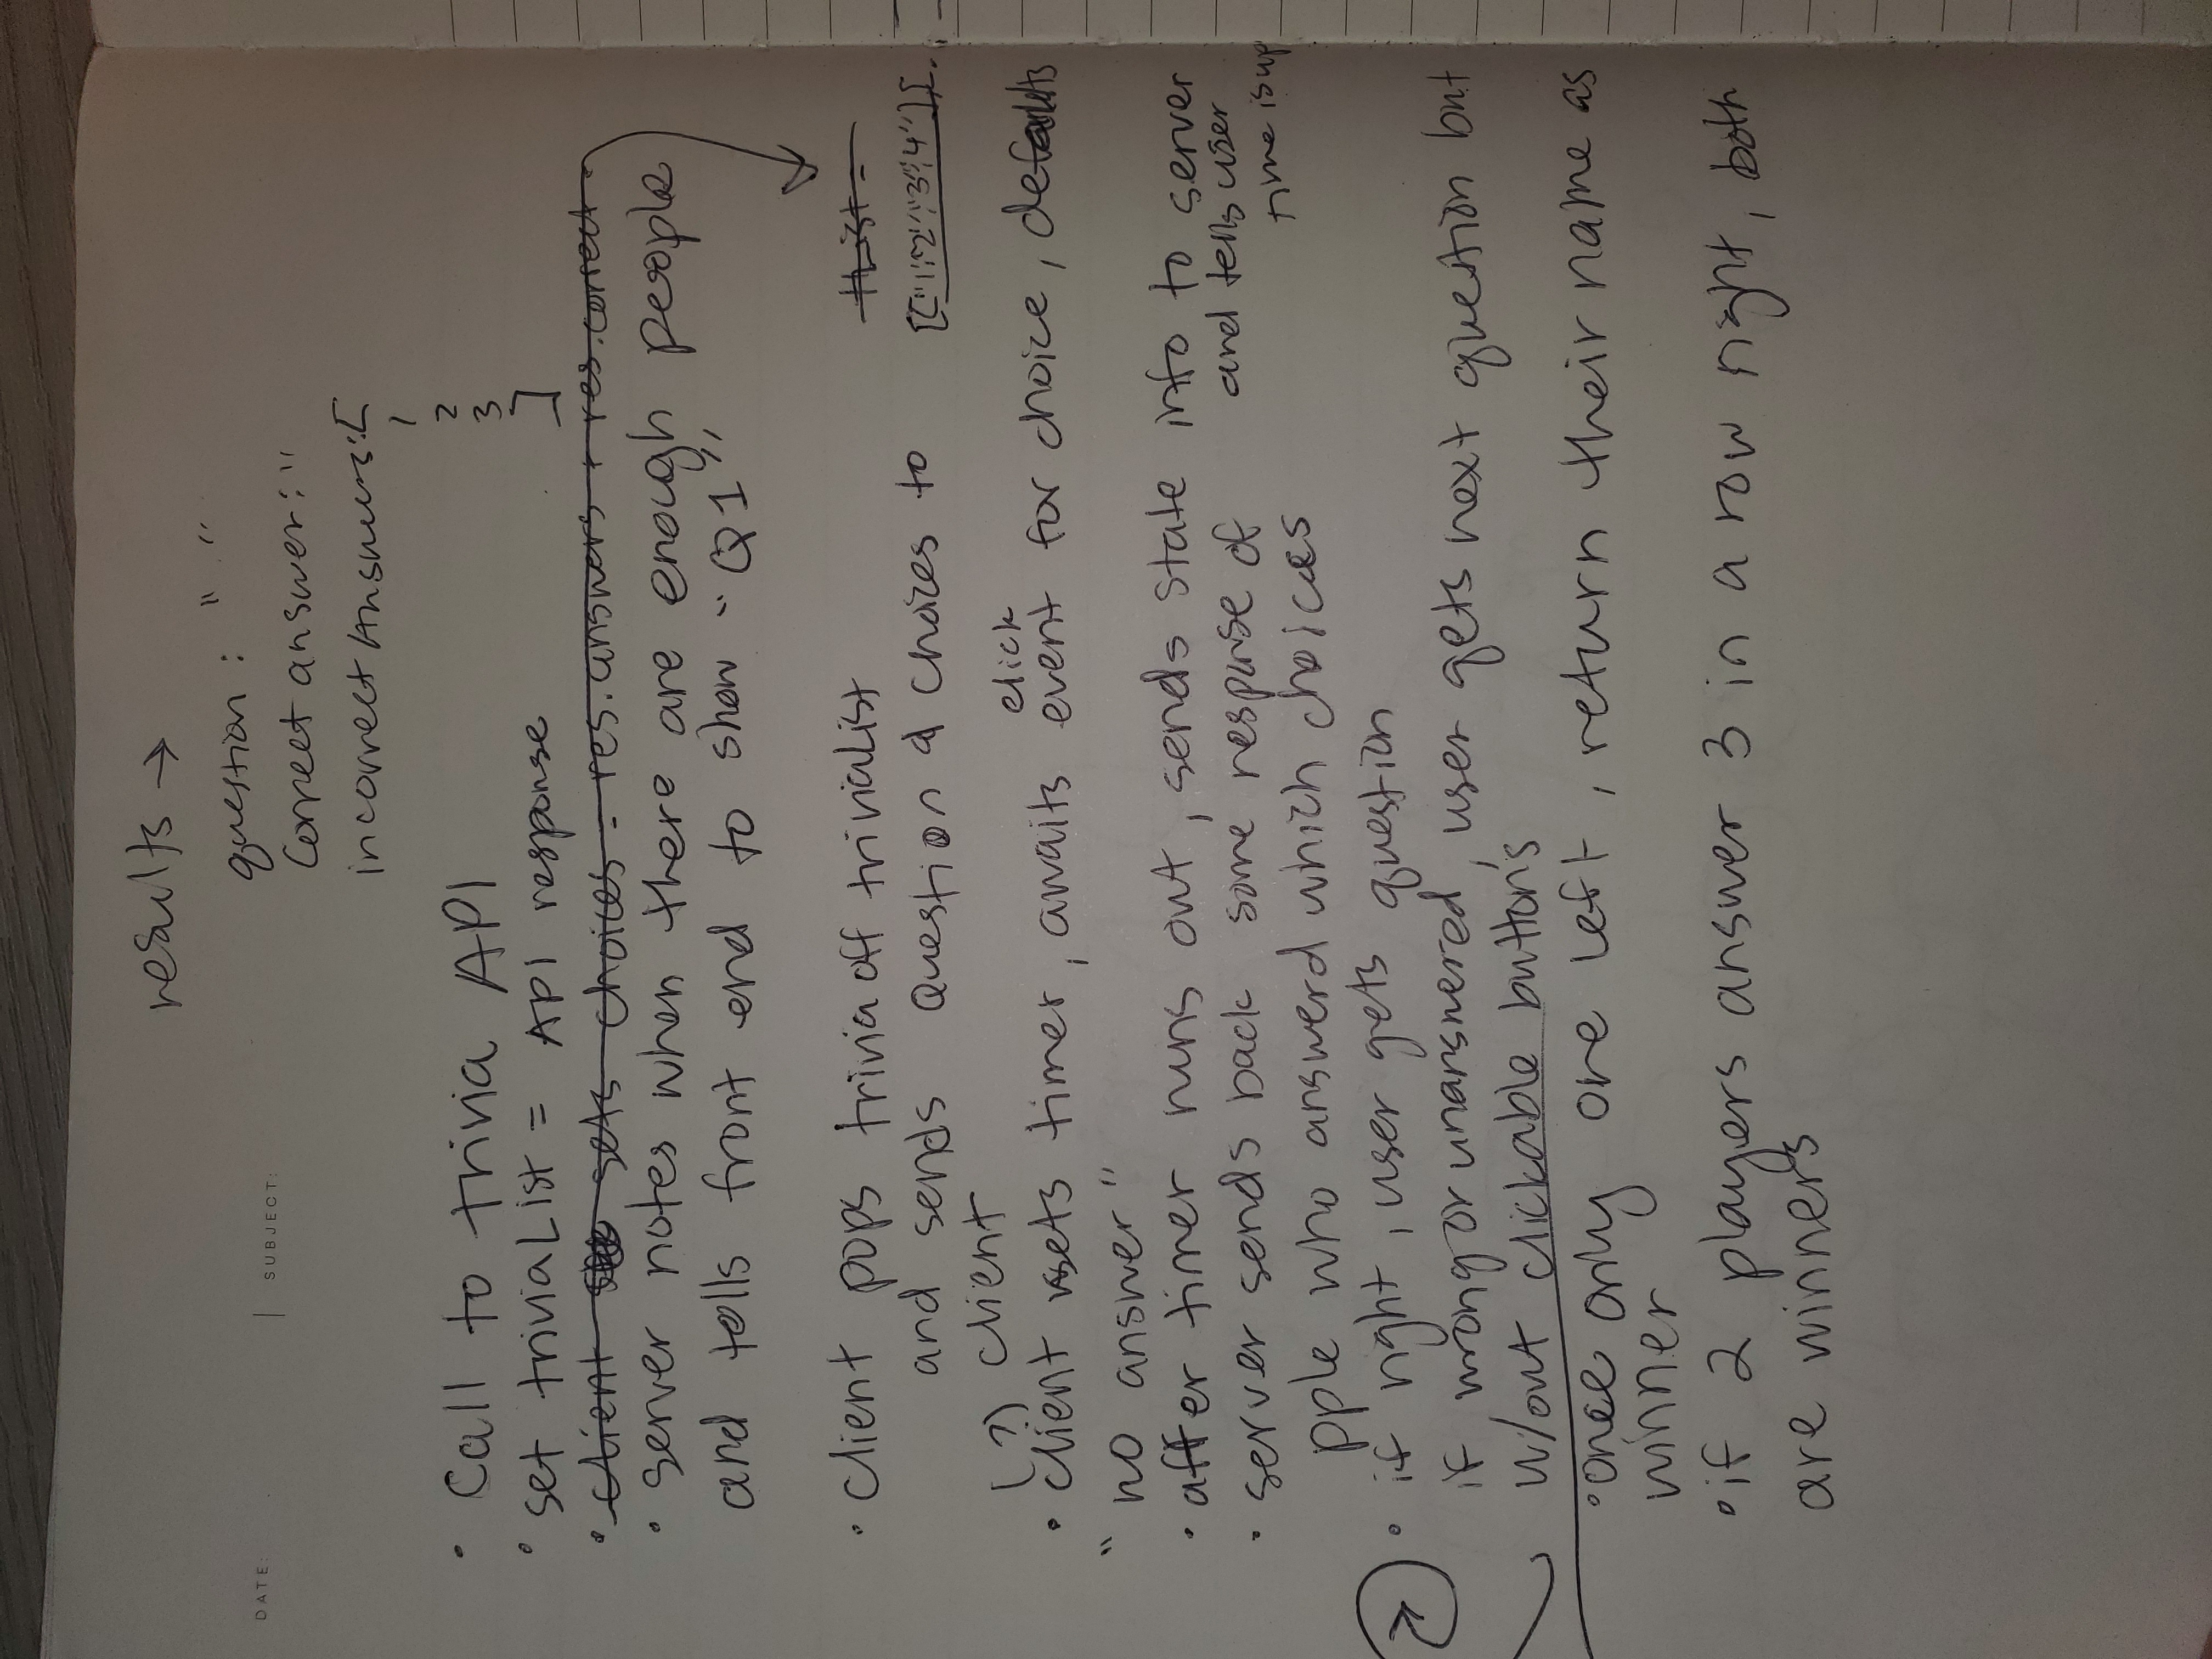 results →
question : " "
DATE:
SUBJECT:
Correct answer: "
incorrect Answers: [
1
2
3
]
• Call to trivia API
• set triviaList = API response
• client sets choices = res.answers + res.correct
• server notes when there are enough people
and tells front end to show "Q1"
• client pops trivia off triviaList
and sends Question & choices to
(?) client
tList =
[["1","2","3","4"],[
click
• client sets timer, awaits event for choice, defaults
"no answer"
• after timer runs out, sends state info to server
and tells user
time is up
• server sends back some response of
pple who answerd which choices
• if right, user gets question
if wrong or unanswered, user gets next question but
w/out clickable buttons
• once only one left, return their name as
winner
• if 2 players answer 3 in a row right, both
are winners